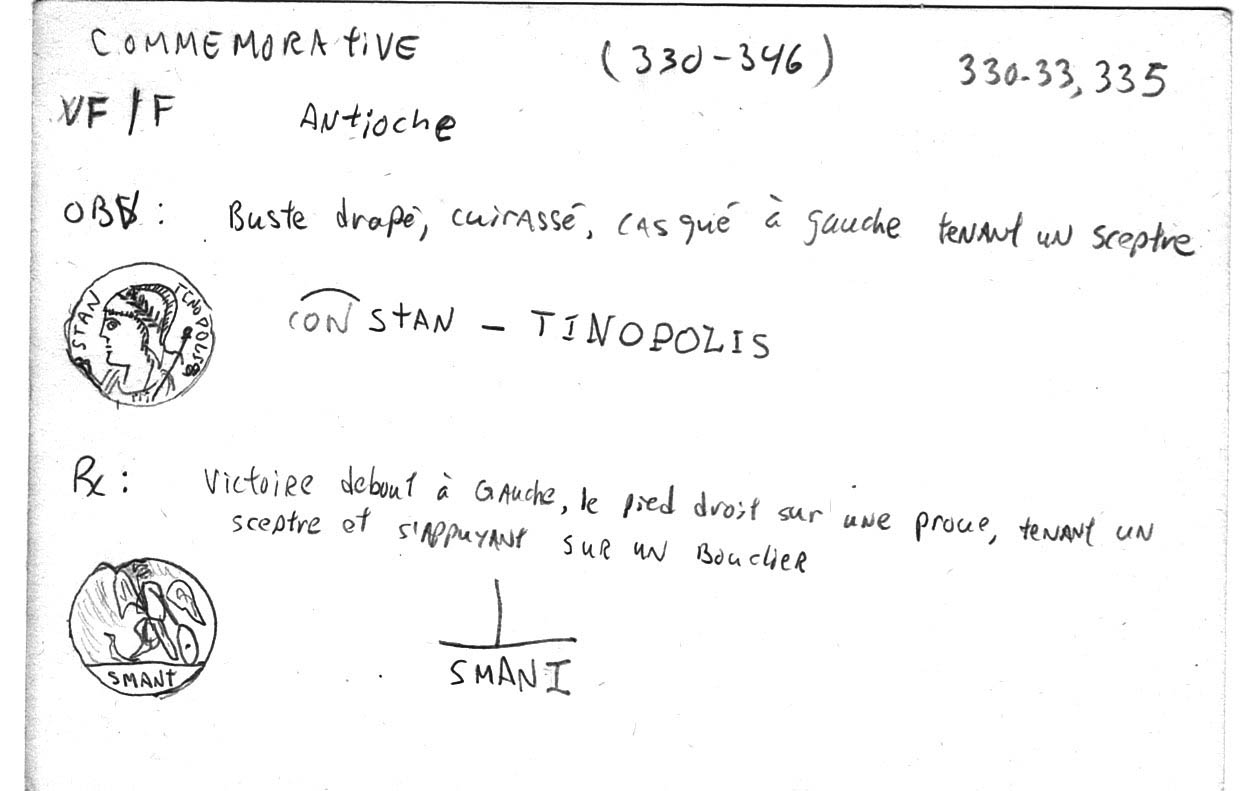 COMMEMORATIVE (330-346) 330-33, 335
VF/F Antioche
OBV: Buste drapé, cuirassé, casqué à gauche tenant un sceptre
STAN TINOPOLIS
CONSTAN - TINOPOLIS
Rx: Victoire debout à Gauche, le pied droit sur une proue, tenant un
sceptre et s'appuyant sur un Bouclier
SMANT
SMANI